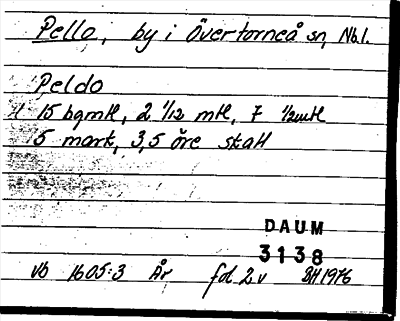 Pello, by i Övertorneå sn, Nb.l.
Peldo
15 bgmtl, 2 1/12 mtl, 7 1/2mtl
5 mark, 3,5 öre skatt
DAUM
3138
Vb 1605:3 År fol 2v BH 1976